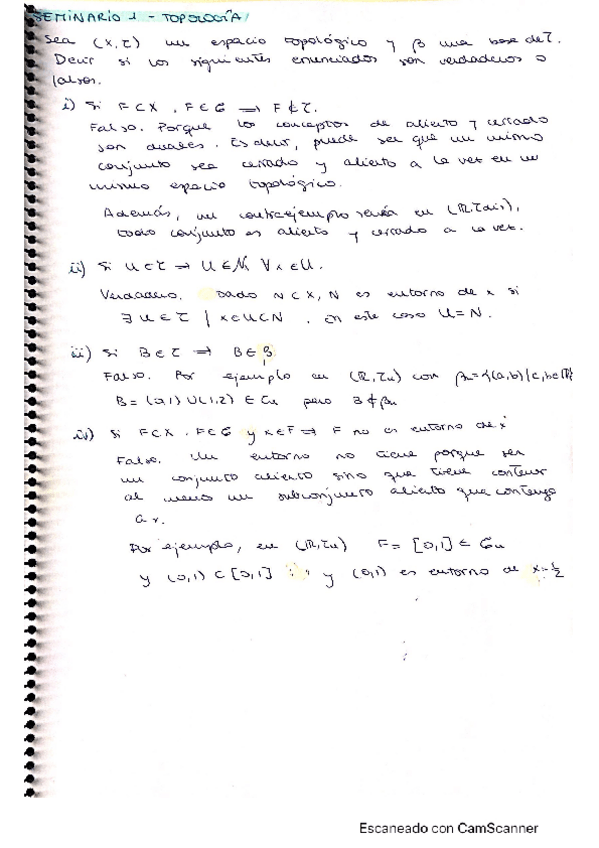 SEMINARIO 1 - TOPOLOGÍA
Sea (X,τ) un espacio topológico y β una base de τ.
Decir si los siguientes enunciados son verdaderos o
falsos.
i) Si F⊂X, F∈C ⟹ F∉τ.
Falso. Porque los conceptos de abierto y cerrado
son duales. Es decir, puede ser que un mismo
conjunto sea cerrado y abierto a la vez en un
mismo espacio topológico.
Además, un contraejemplo sería en (ℝ,τdis),
todo conjunto es abierto y cerrado a la vez.
ii) Si U∈τ ⟹ U∈Nₓ ∀x∈U.
Verdadero. Dado N⊂X, N es entorno de x si
∃U∈τ | x∈U⊂N. En este caso U=N.
iii) Si B∈τ ⟹ B∈β
Falso. Por ejemplo en (ℝ,τu) con βu={(a,b)/a,b∈ℝ}
B=(0,1)∪(1,2)∈τu pero B∉βu
iv) Si F⊂X, F∈C y x∈F ⟹ F no es entorno de x
Falso. Un entorno no tiene porque ser
un conjunto abierto sino que tiene contener
al menos un subconjunto abierto que contenga
a x.
Por ejemplo, en (ℝ,τu) F=[0,1]∈Cu
y (0,1)⊂[0,1] y (0,1) es entorno de x=1/2
Escaneado con CamScanner